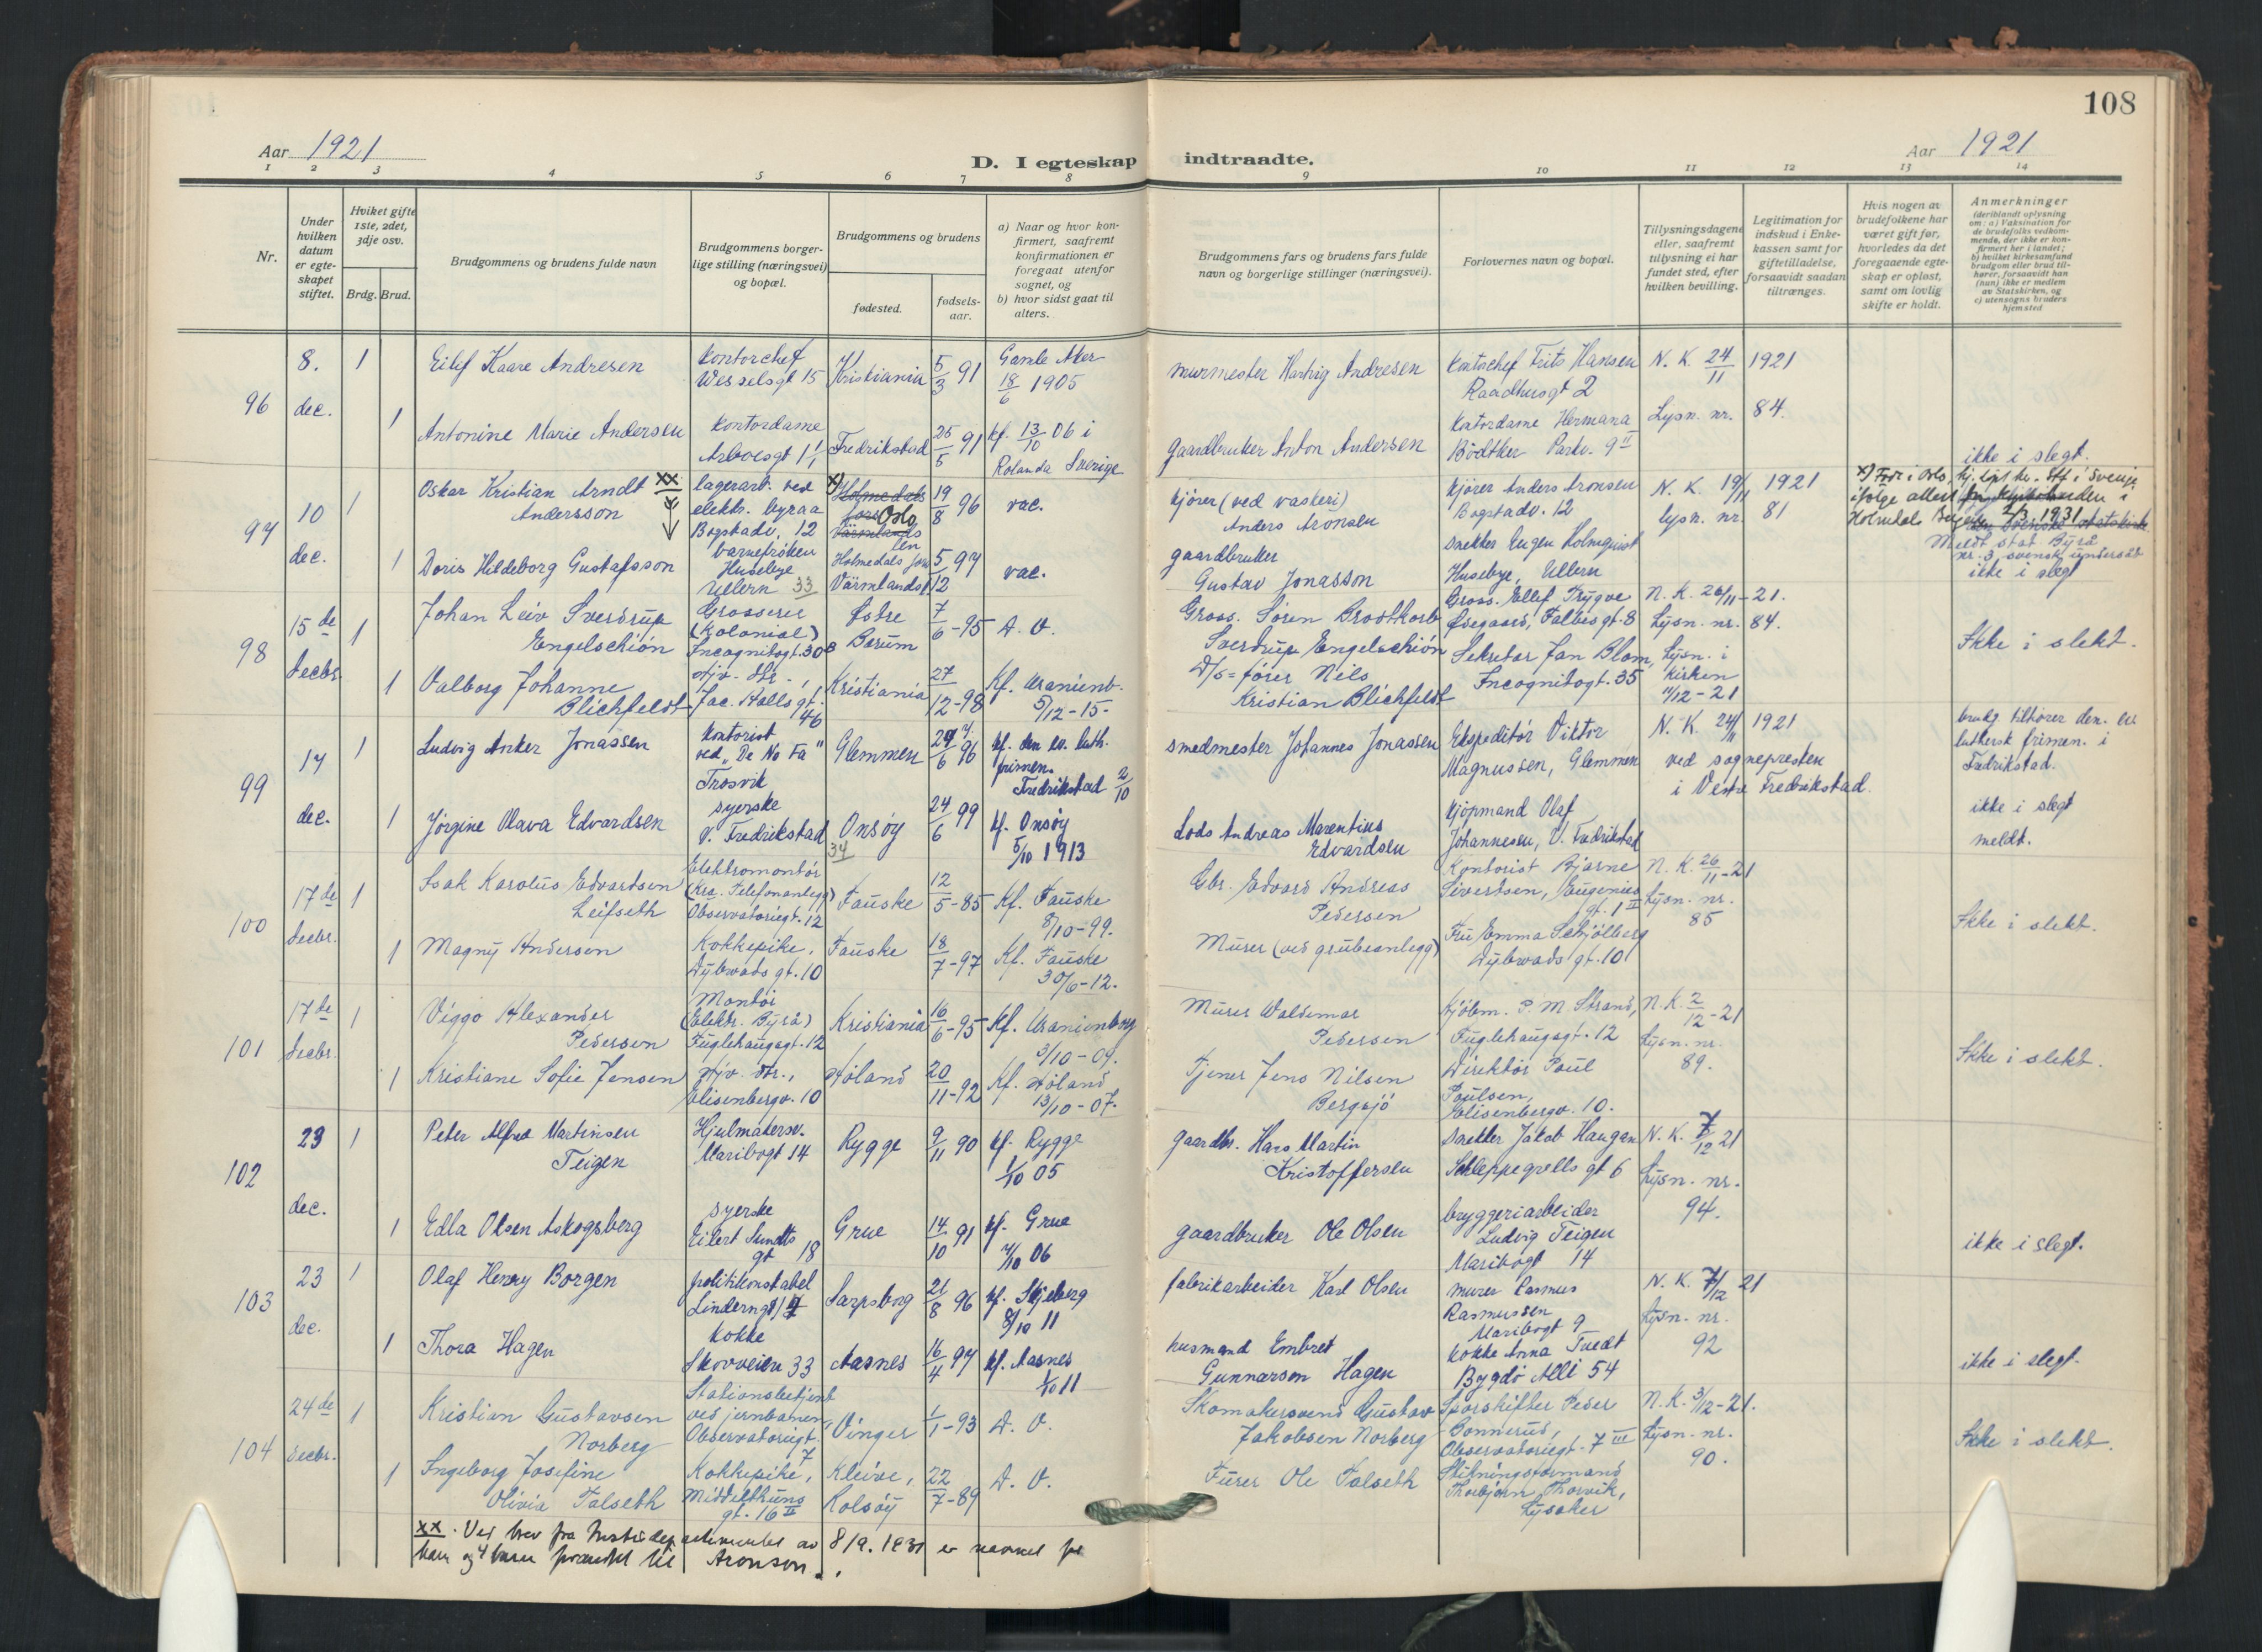 108
Aar 1921
D. I egteskap indtraadte.
Aar 1921
1 2 3 4 5 6 7 8 9 10 11 12 13 14
Nr.
Under hvilken datum er egteskapet stiftet.
Hviket gifte 1ste, 2det, 3dje osv.
Brdg. Brud.
Brudgommens og brudens fulde navn
Brudgommens borgerlige stilling (næringsvei) og bopæl.
Brudgommens og brudens
fødested.
fødselsaar.
a) Naar og hvor konfirmert, saafremt konfirmationen er foregaat utenfor sognet, og
b) hvor sidst gaat til alters.
Brudgommens fars og brudens fars fulde navn og borgerlige stillinger (næringsvei).
Forlovernes navn og bopæl.
Tillysningsdagene eller, saafremt tillysning ei har fundet sted, efter hvilken bevilling.
Legitimation for indskud i Enkekassen samt for giftetilladelse, forsaavidt saadan tiltrænges.
Hvis nogen av brudefolkene har været gift før, hvorledes da det foregaaende egteskap er opløst, samt om lovlig skifte er holdt.
Anmerkninger
(deriblandt oplysning om: a) Vaksination for de brudefolks vedkommende, der ikke er konfirmert her i landet; b) hvilket kirkesamfund brudgom eller brud tilhører, forsaavidt han (hun) ikke er medlem av Statskirken, og c) utensogns bruders hjemsted
96
8. dec.
1 Eilif Kaare Andresen
kontorchef
Wesselsgt 15
Kristiania
5/3 91
Gamle Aker
18/6 1905
murmester Hartvig Andresen
kontorchef Frits Hansen
Raadhusgt 2
N. K. 24/11 1921
1 Antonine Marie Andersen
kontordame
Arboesgt 1
Fredrikstad
25/5 91
kf. 13/10 06 i
Rolanda Sverige
gaardbruker Anton Andersen
kontordame Hermana
Bødtker Parkv. 9 II
Lysn. nr. 84.
ikke i slegt.
97
10 dec.
1 Oskar Kristian Arndt xx
Andersson
lagerarb. ved
elektr. byraa
Bogstadv. 12
x) Holmedals
Oslo
Värmlands
len
19/8 96
vac.
kjører (ved vaskeri)
Anders Aronsen
kjører Anders Aronsen
Bogstadv. 12
N. K. 19/11 1921
lysn. nr. 81
x) Født i Oslo,
ifølge attest
Holmedal
2/3 1931
Meldt stat. Byrå
nr. 3, svensk undersåt
1 Doris Hildeborg Gustafsson
barnefrøken
Husebye
Ullern 33
Holmedals
Värmlands
5/12 97
vac.
gaardbruker
Gustav Jonasson
snekker Eugen Holmquist
Husebye, Ullern
ikke i slegt
98
15 de
Decbr.
1 Johan Leiv Sverdrup
Engelschiøn
Grosserer
(Kolonial)
Incognitogt. 30 B
Østre
Bærum
7/6 - 95
D. O.
Gross. Søren Brostkorb
Sverdrup Engelschiøn
Gross. Ellef Trygve
Øsegaard, Falbesgt. 8
N. K. 26/11 - 21.
Lysn. nr. 84.
1 Valborg Johanne
Blichfeldt
Hjv. Dtr.,
Jac. Aallsgt.
46
Kristiania
27/12 - 98
Kf. Uranienb.
5/12 - 15 -
D/S = fører Nils
Kristian Blichfeldt
Sekretær Jan Blom,
Incognitogt. 35
Lysn. i
kirken
11/12 - 21
Ikke i slekt.
99
17 dec.
1 Ludvig Anker Jonassen
kontorist
ved „De No Fa"
Trosvik
Glemmen
24/6 96
kf. den ev. luth.
frimen.
Fredrikstad 2/10
smedmester Johannes Jonassen
Ekspeditør Viktor
Magnussen, Glemmen
N. K. 24/11 1921
ved sognepresten
i Vestre Fredrikstad.
brudg. tilhører den. ev
luthersk frimen. i
Fredrikstad.
1 Jørgine Olava Edvardsen
syerske
V. Fredrikstad
34
Onsøy
24/6 99
kf. Onsøy
5/10 1913
Lods Andreas Marentius
Edvardsen
kjøpmand Olaf
Johannesen, V. Fredrikstad
ikke i slegt
meldt.
100
17 de
Decbr.
1 Isak Karolus Edvardsen
Leifseth
Elektromontør
(Kra. Telefonanlegg)
Observatoriegt. 12
Fauske
12/5 - 85
Kf. Fauske
8/10 - 99.
Gbr. Edvard Andreas
Pedersen
Kontorist Bjarne
Sivertsen, Eugenies
gt. 1 II
N. K. 26/11 - 21
Lysn. nr.
85
1 Magny Andersen
Kokkepike,
Dybwads gt. 10
Fauske
18/7 - 97
Kf. Fauske
30/6 - 12.
Murer (ved grubeanlegg)
Fru Emma Schjølberg
Dybwads gt. 10
Ikke i slekt.
101
17 de
Decbr.
1 Viggo Alexander
Pedersen
Montør
(Elektr. Byrå)
Fuglehaugsgt. 12
Kristiania
16/6 - 95
Kf. Uranienborg
3/10 - 09.
Murer Waldemar
Pedersen
Kjøbm. P. M. Strand,
Fuglehaugsgt. 12
N. K. 2/12 - 21
Lysn. nr.
89.
1 Kristiane Sofie Jensen
Hjv. Dtr.,
Elisenbergv. 10
Høland
20/11 - 92
Kf. Høland
13/10 - 07.
Tjener Jens Nilsen
Bergsjø
Direktør Poul
Poulsen,
Elisenbergv. 10.
Ikke i slekt.
102
23 dec.
1 Peter Alfred Martinsen
Teigen
Hjulmakersv.
Maribogt 14
Rygge
9/11 90
kf. Rygge
1/10 05
gaardbr. Hans Martin
Kristoffersen
snekker Jakob Haugan
Schleppegrells gt 6
N. K. 7/12 21
Lysn. nr.
94.
1 Edla Olsen Askogsberg
syerske
Eilert Sundts
gt 18
Grue
14/10 91
kf. Grue
7/10 06
gaardbruker Ole Olsen
bryggeriarbeider
Ludvig Teigen
Maribogt 14
ikke i slegt.
103
23 dec.
1 Olaf Henry Borgen
politikonstabel
Sarpsborg
21/8 96
kf. Skjeberg
8/10 11
fabrikarbeider Karl Olsen
murer Rasmus
Rasmussen
Maribogt 9
N. K. 7/12 21
Lysn. nr.
92
1 Thora Hagen
kokke
Skovveien 33
Aasnes
16/4 97
kf. Aasnes
1/10 11
husmand Embret
Gunnarson Hagen
kokke Anna Tvedt
Bygdø Alle 54
ikke i slegt.
104
24 de
Decbr.
1 Kristian Gustavsen
Norberg
Stationsbetjent
ved jernbanen
Observatoriegt.
7
Vinger
1/1 - 93
D. O.
Skomakersvend Gustav
Jakobsen Norberg
Sporskifter Peder
Bonnerud,
Observatoriegt. 7 III
N. K. 3/12 - 21.
Lysn. nr.
90.
1 Ingeborg Josefine
Olivia Talseth
Kokkepike,
Middelthuns
gt. 16 II
Kleive,
Bolsøy
22/7 - 89
D. O.
Furer Ole Talseth
Thorbjørn Thorvik,
Lysaker
Ikke i slekt.
xx. Ved brev fra Justisdepartementet av 8/9. 1931 er navnet på
ham og 4 barn forandret til Aronson.